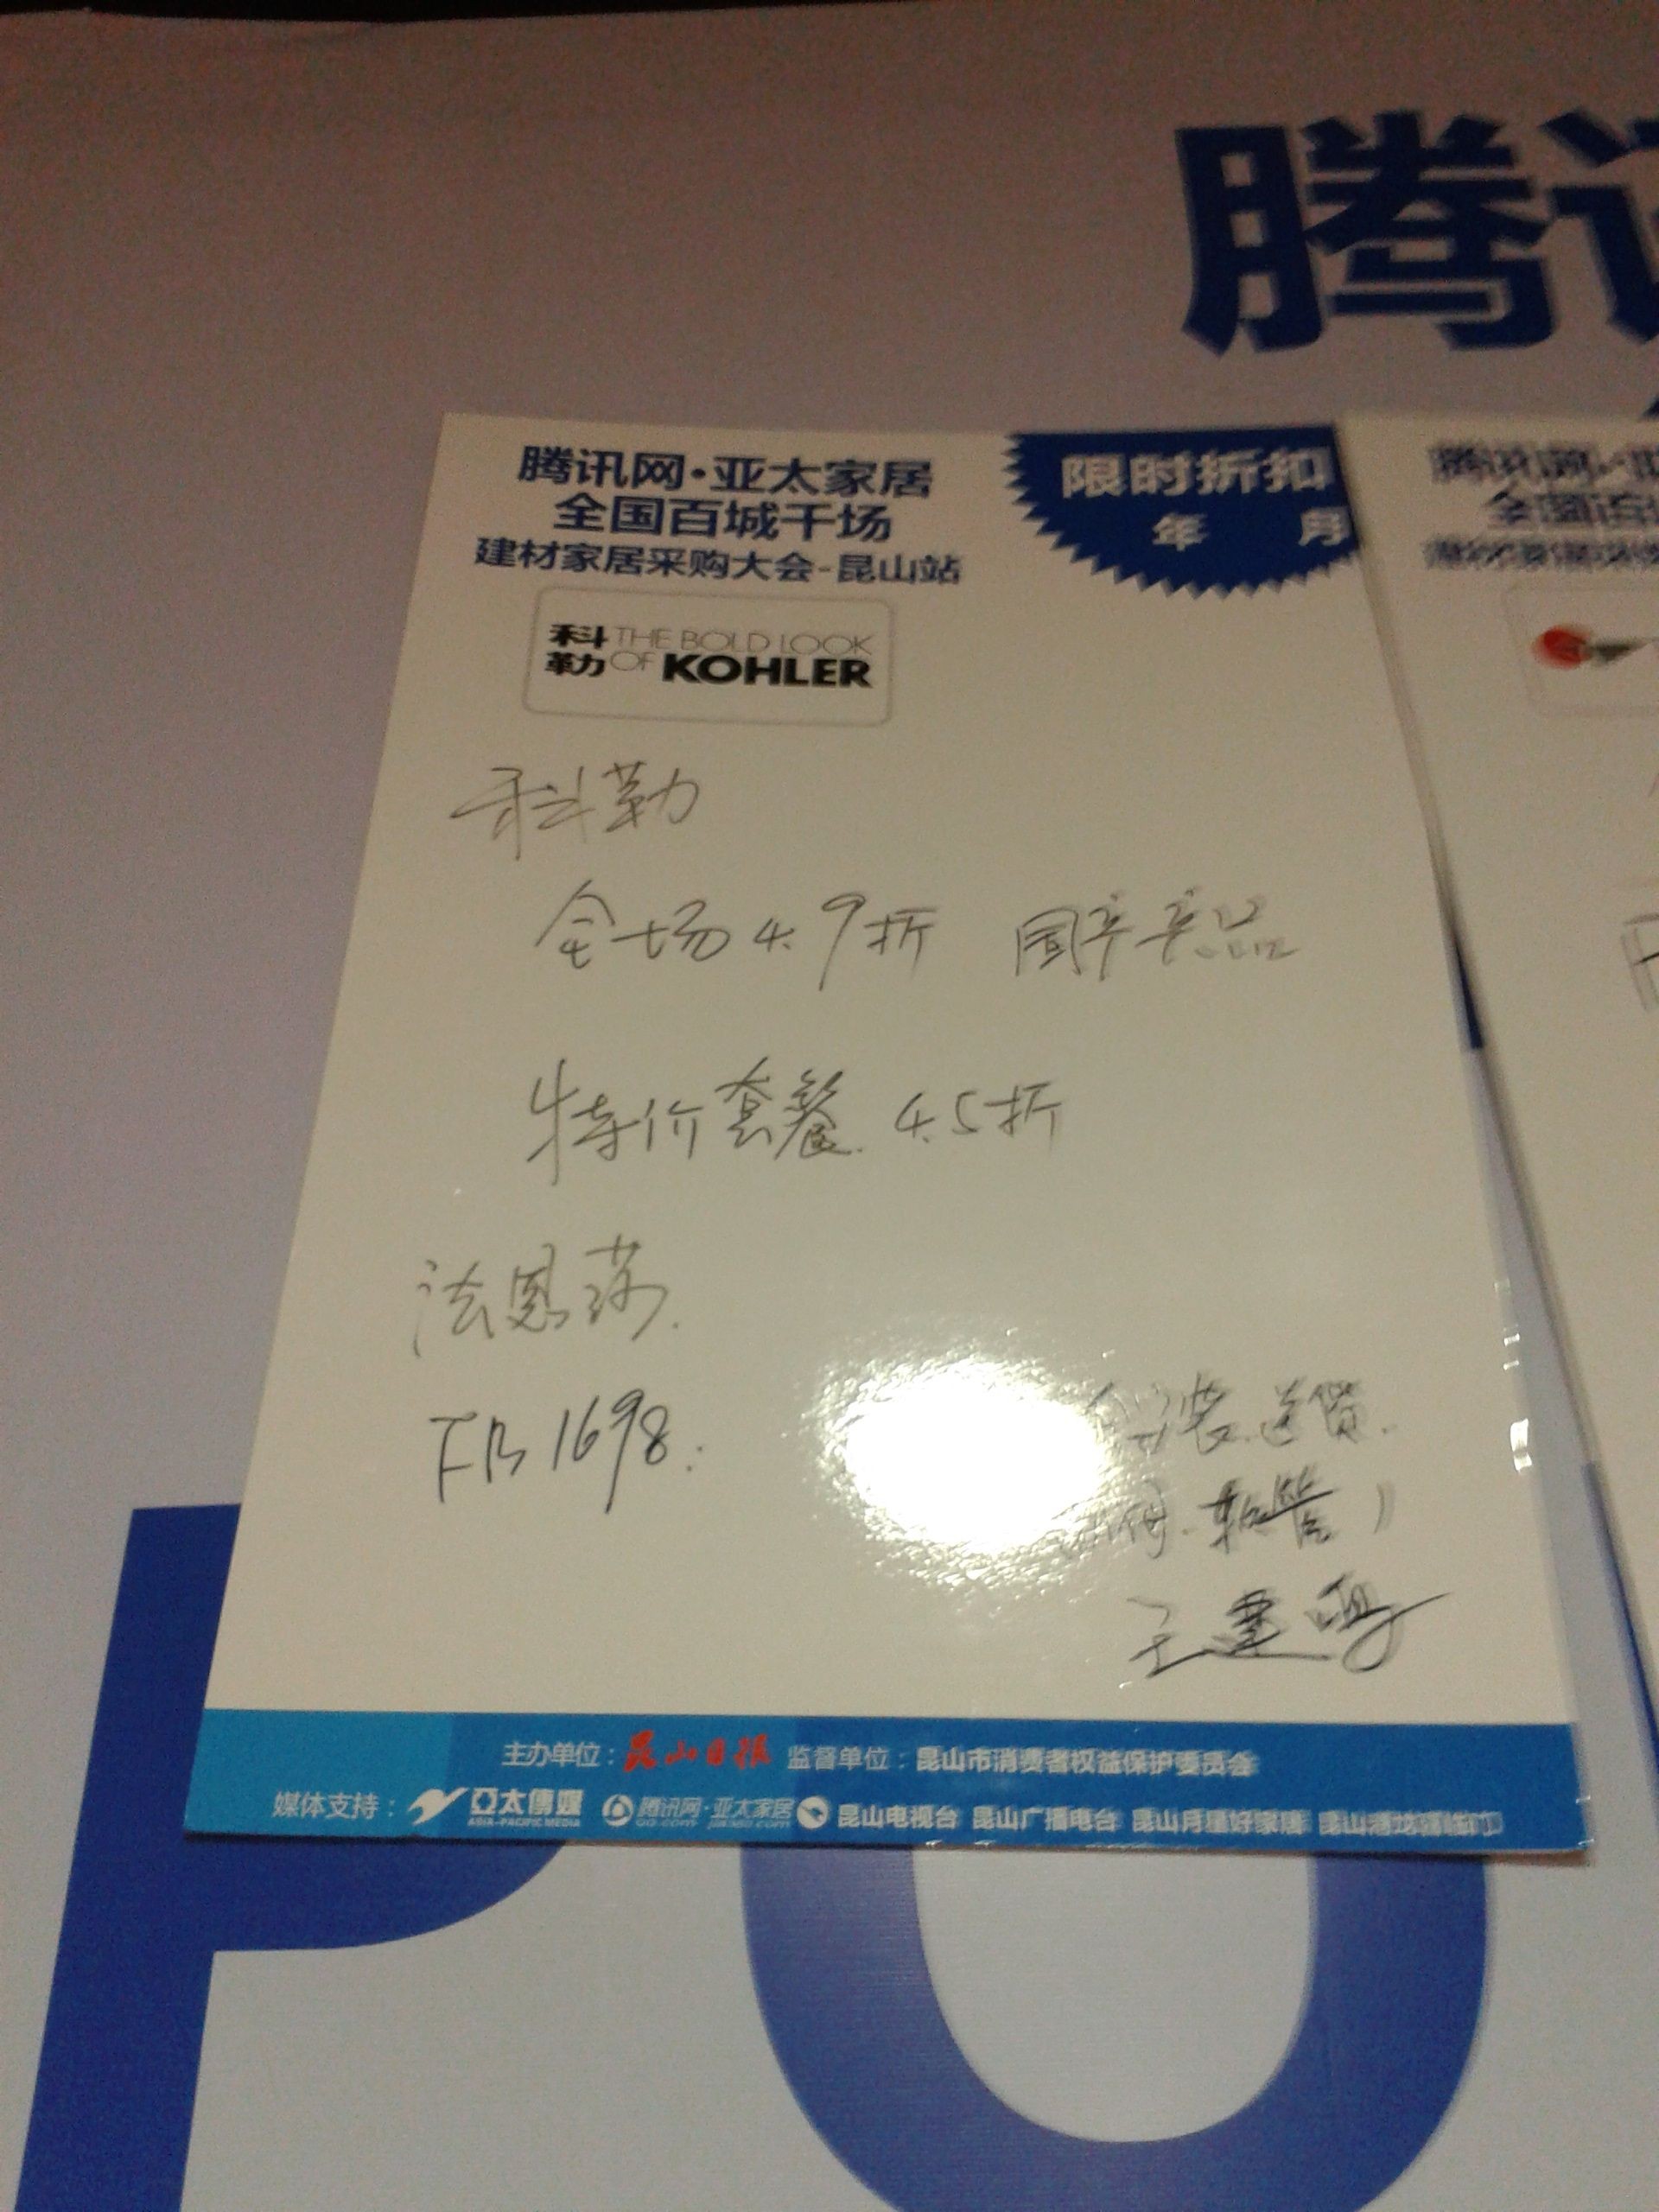 腾讯
腾讯网·亚太家居
全国百城千场
建材家居采购大会-昆山站
限时折扣
年 月
科勒 THE BOLD LOOK
OF KOHLER
科勒
全场4.9折 国产产品
特价套餐 4.5折
法恩莎
FB1698
安装.送货.
软管)
主办单位:昆山日报 监督单位:昆山市消费者权益保护委员会
媒体支持: 亞太傳媒 ASIA-PACIFIC MEDIA 腾讯网·亚太家居 昆山电视台 昆山广播电台 昆山月星好家居